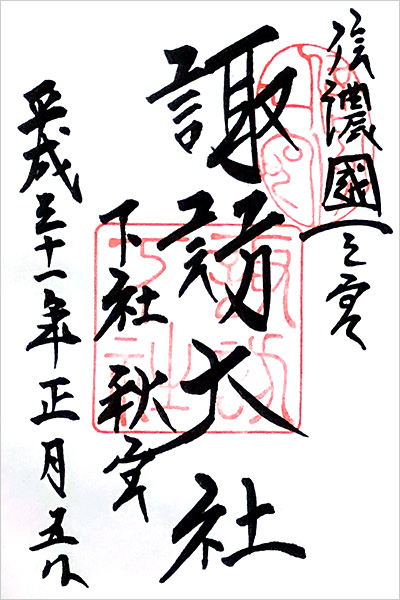 信濃國一之宮
諏訪大社
下社 秋宮
平成三十一年正月五日